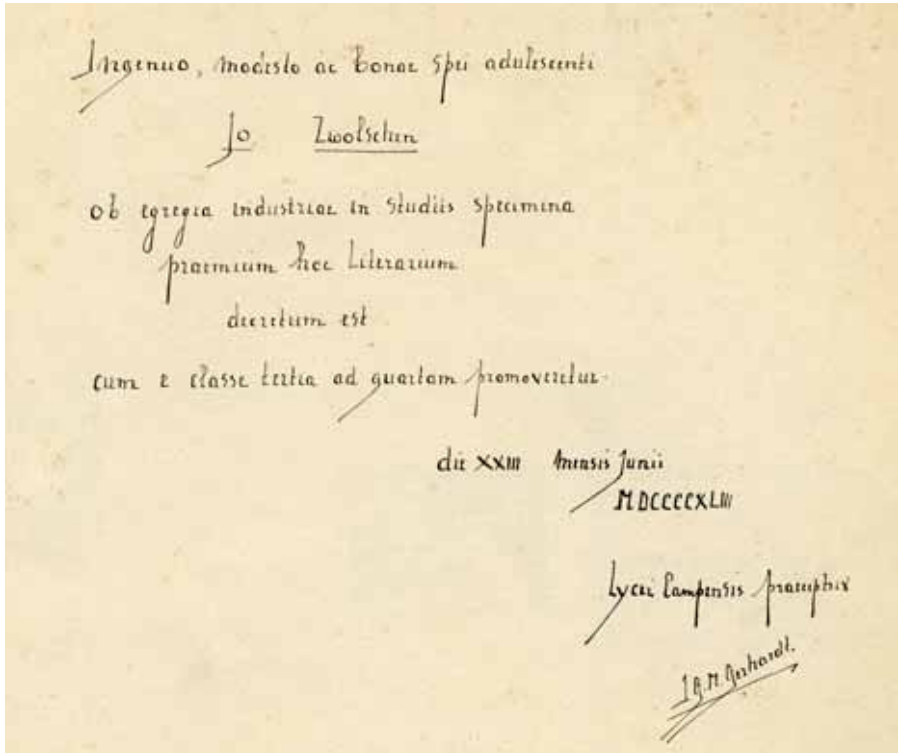 Ingenuo, modesto ac bonae spei adulescenti
Jo Zwolschen
ob egregia industriae in studiis specimina
praemium hoc literarium
decretum est
cum e classe tertia ad quartam promoveretur.
die XXIII mensis Junii
MDCCCCXLIII
Lycei Campensis praeceptrix
I.G.M. Gerhardt.